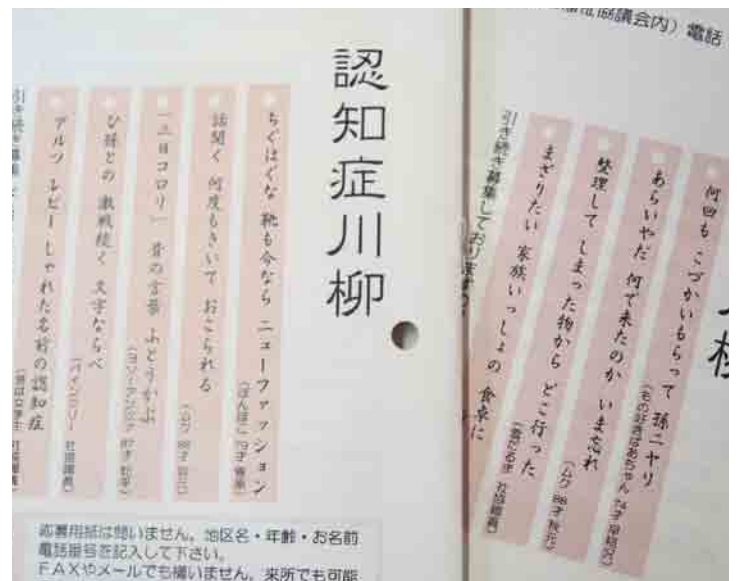 認知症川柳
ちぐはぐな 靴も今なら ニューファッション
(ぽんぽこ 79才
話聞く 何度もきいて おこられる
(ムク 88才 秋元)
「三日コロリ」 昔の言葉 ふとうかぶ
ひ孫との 激戦続く 文字ならべ
(パインミリー 社協職員)
アルツ レビー しゃれた名前の認知症
社協職員)
引き続き募集
応募用紙は問いません。地区名・年齢・お名前
電話番号を記入して下さい。
FAXやメールでも構いません。来所でも可能
協議会内)電話
柳
何回も こづかいもらって 孫ニヤリ
(もの好きばあちゃん
あらいやだ 何で来たのか いま忘れ
(ムク 88才 秋元)
整理して しまった物から どこ行った
(雪だるま 社協職員)
まざりたい 家族いっしょの 食卓に
引き続き募集しており